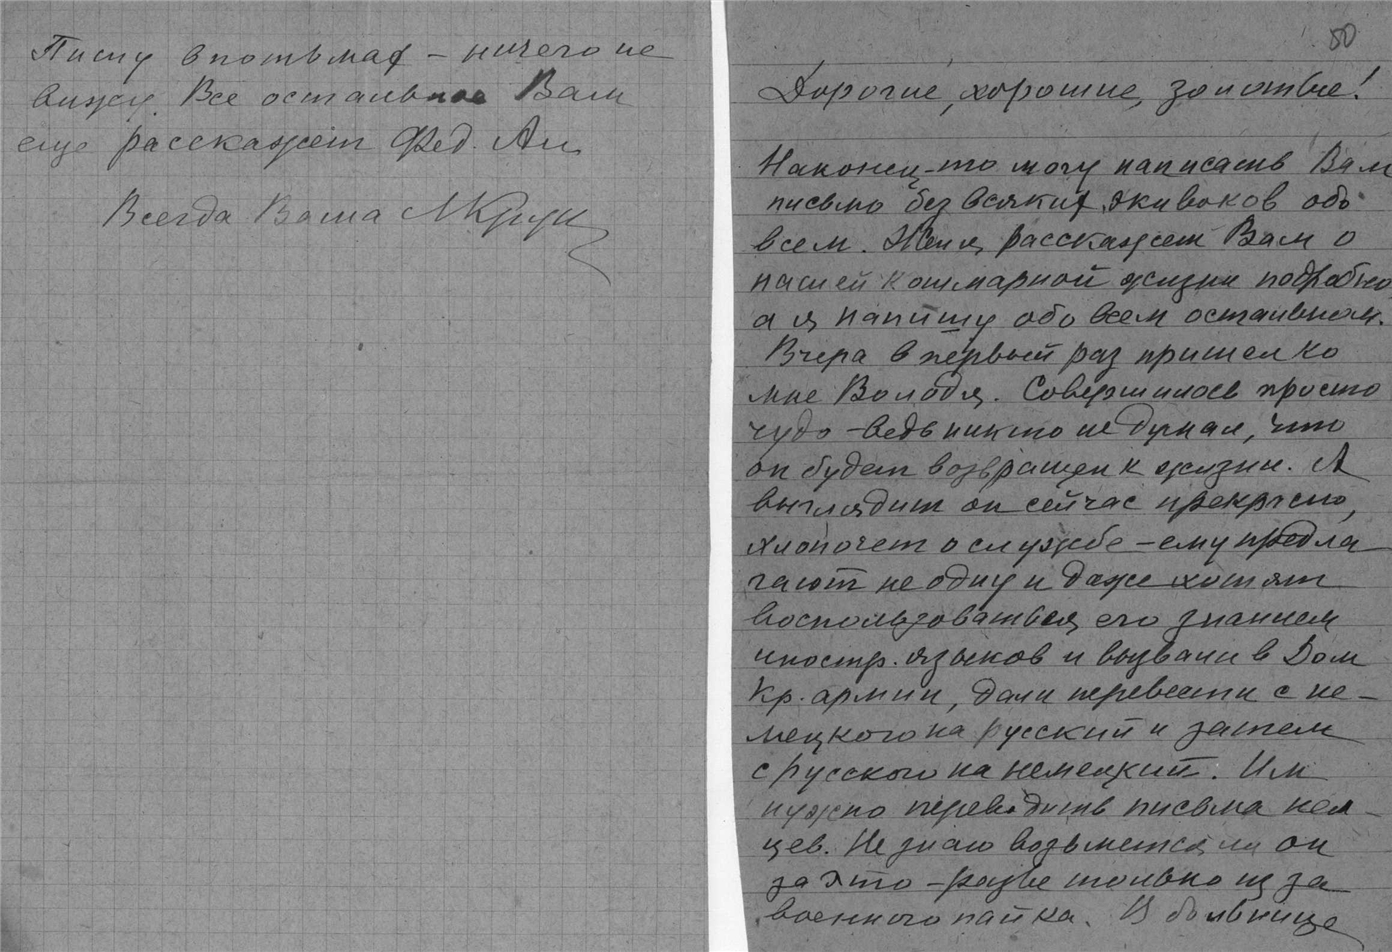 Пишу впотьмах – ничего не
вижу Все остальное Вам
еще расскажет Фед. Ан.
Всегда Ваша МКрук
80
Дорогие, хорошие, золотые!
Наконец-то могу написать Вам
письмо без всяких экивоков обо
всем. Женя расскажет Вам о
нашей кошмарной жизни подробно
а я напишу обо всем остальном.
Вчера в первый раз пришел ко
мне Володя. Совершилось просто
чудо – ведь никто не думал, что
он будет возвращен к жизни. А
выглядит он сейчас прекрасно,
хлопочет о службе – ему предла-
гают не одну и даже хотят
воспользоваться его знанием
иностр. языков и вызвали в Дом
Кр. армии, дали перевести с не-
мецкого на русский и затем
с русского на немецкий. Им
нужно переводить письма нем-
цев. Не знаю возьмется ли он
за это – разве только из за
военного пайка. В больнице